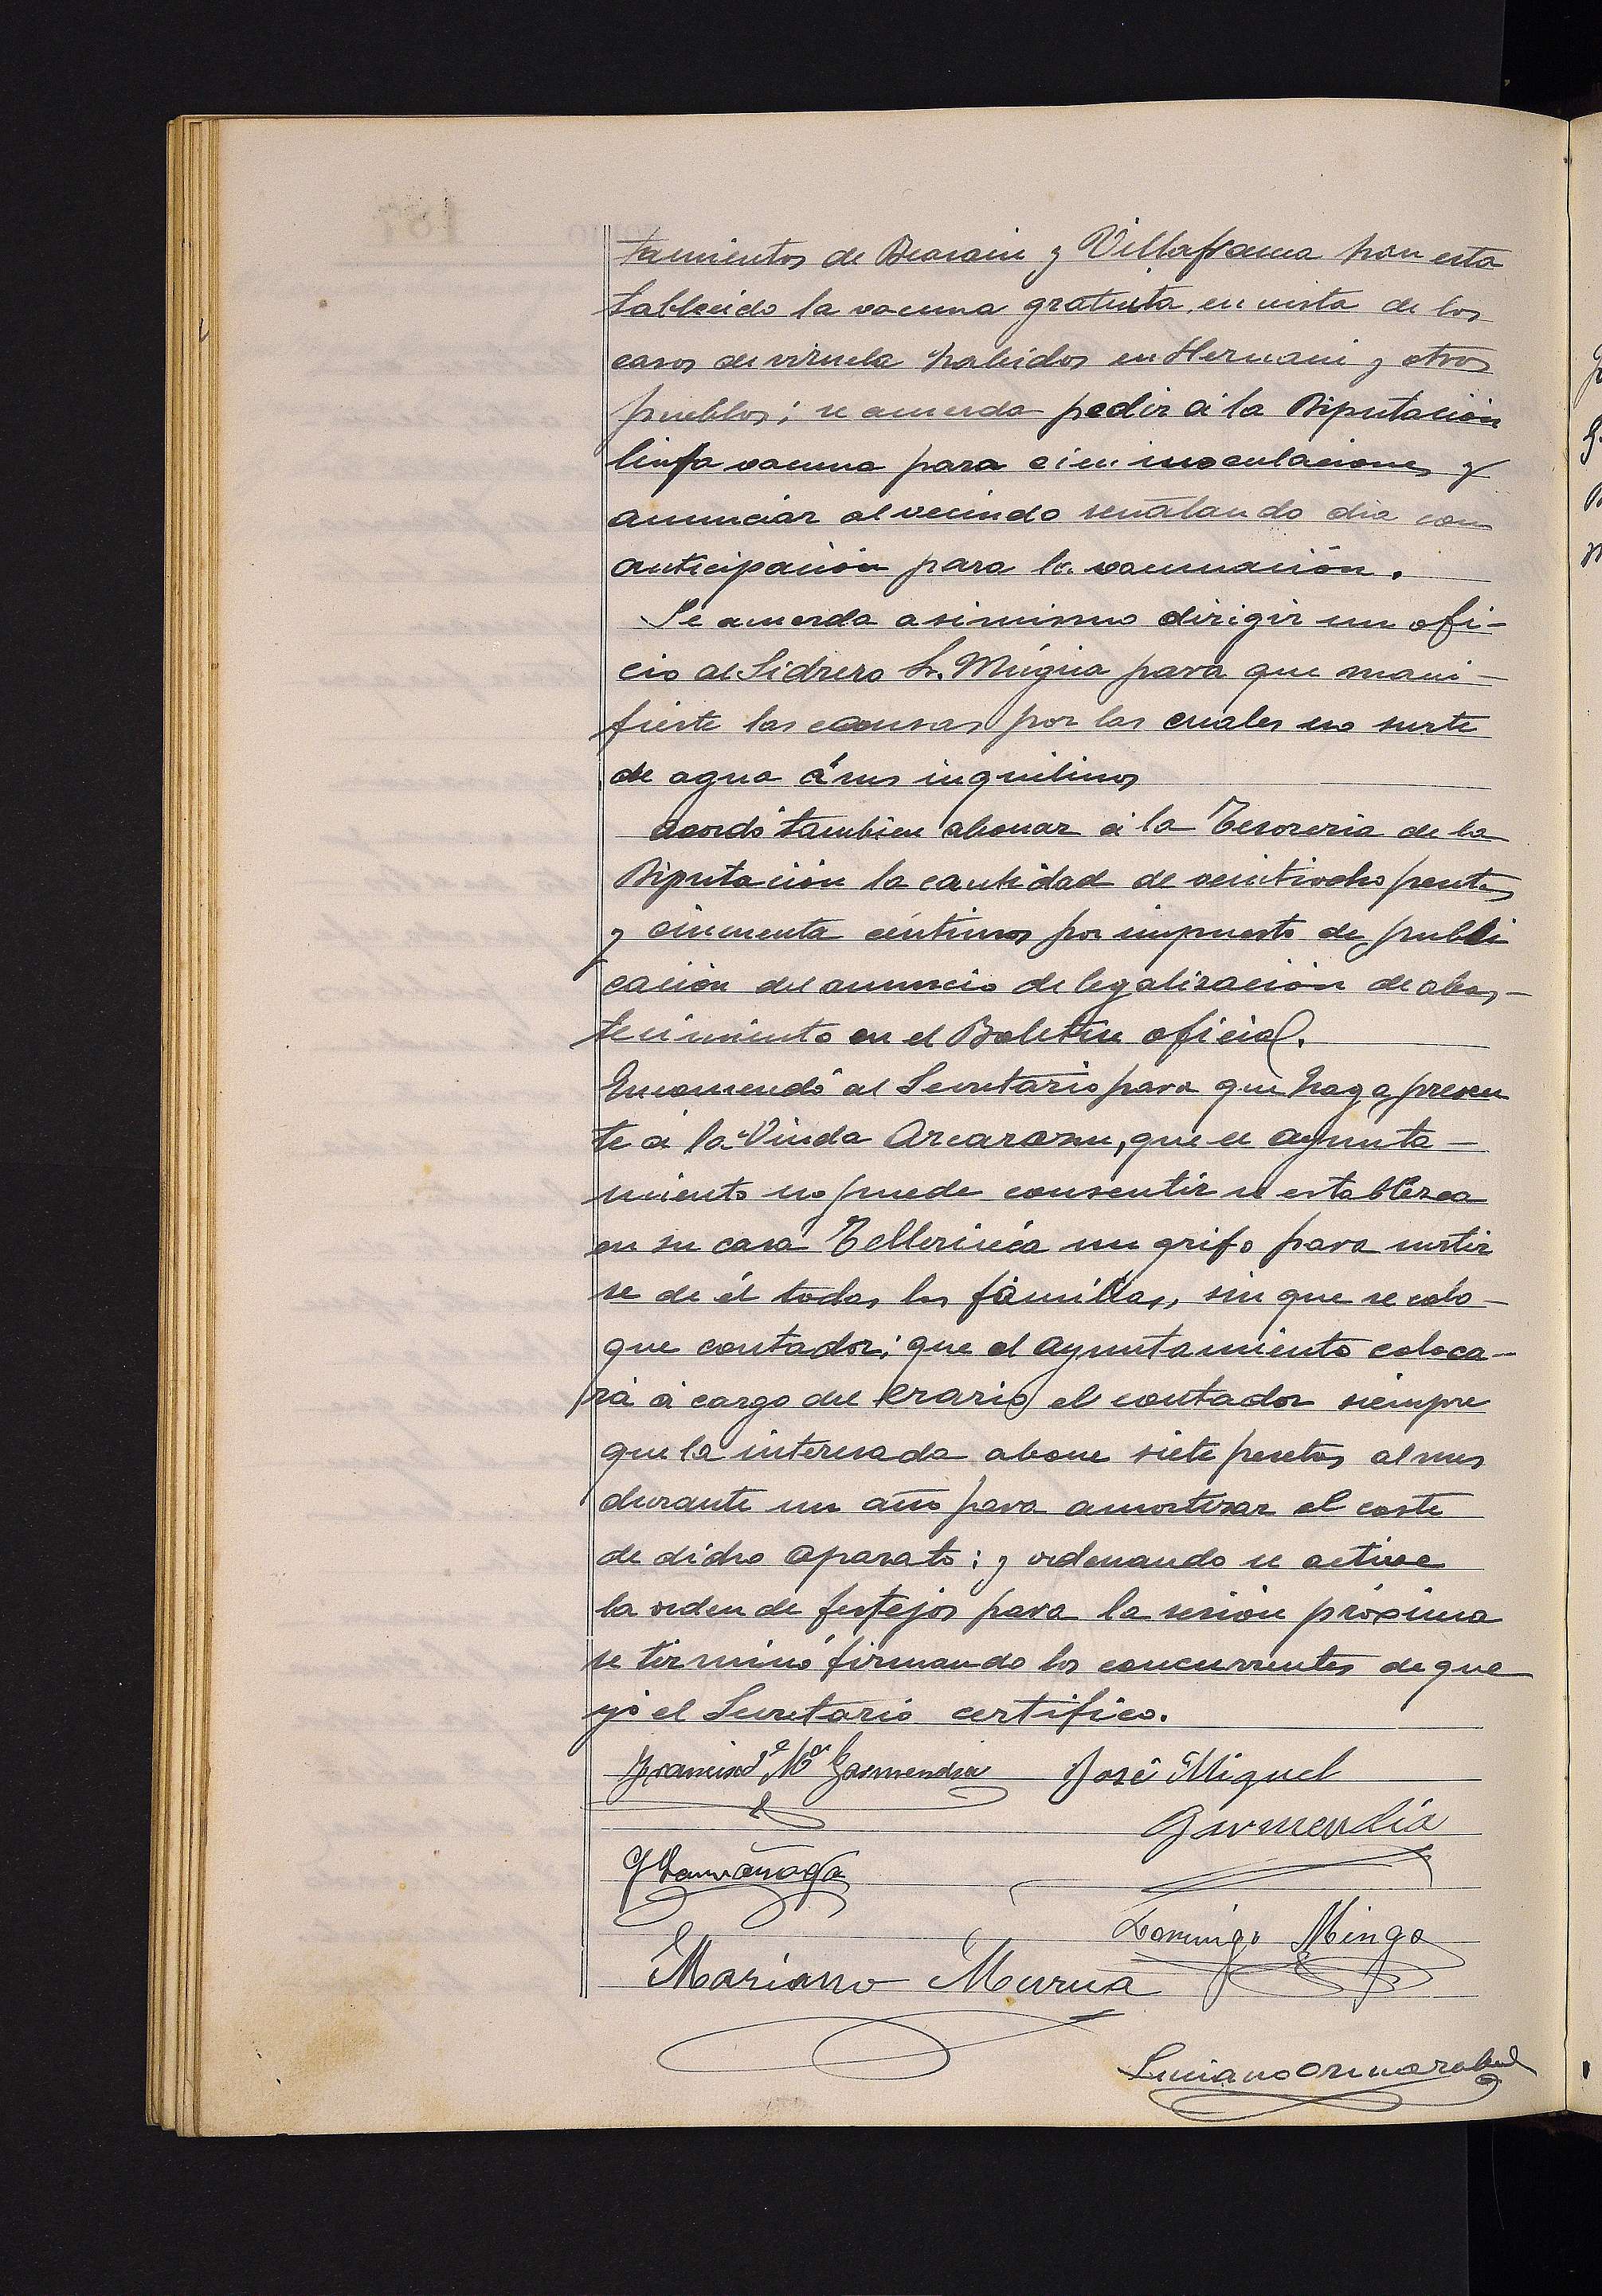 tamientos de Beasain y Villafranca han esta
tablecido la vacuna gratuita, en vista de los
casos de viruela habidos en Hernani y otros
pueblos; se acuerda pedir á la Diputación
linfa vacuna para cien inoculaciones y
anunciar al vecindo señalando dia con
anticipación para la vacunación.
Se acuerda asimismo dirigir un ofi-
cio al Sidrero Sr. Múgica para que mani-
fieste las causas por las cuales no surte
de agua á sus inquilinos
Acordó tambien abonar á la Tesoreria de la
Diputación la cantidad de veintiocho pesetas
y cincuenta céntimos por impuesto de publi
cación del anuncio de legalización de abas-
tecimiento en el Boletin oficial.
Encomendó al Secretario para que haga presen
te á la Viuda Arcarazu, que el ayunta-
miento no puede consentir se establezca
en su casa un grifo para surtir
se de él todas las familias, sin que se colo-
que contador; que el ayuntamiento coloca-
rá á cargo del erario el contador siempre
que la interesada abone siete pesetas al mes
durante un año para amortizar el coste
de dicho aparato: y ordenando se active
la orden de festejos para la sesión próxima
se terminó firmando los concurrentes de que
yó el Secretario certifico.
Francisco Garmendia José Miguel
Garmendia
Domingo Mingo
Mariano Murua
Luciano